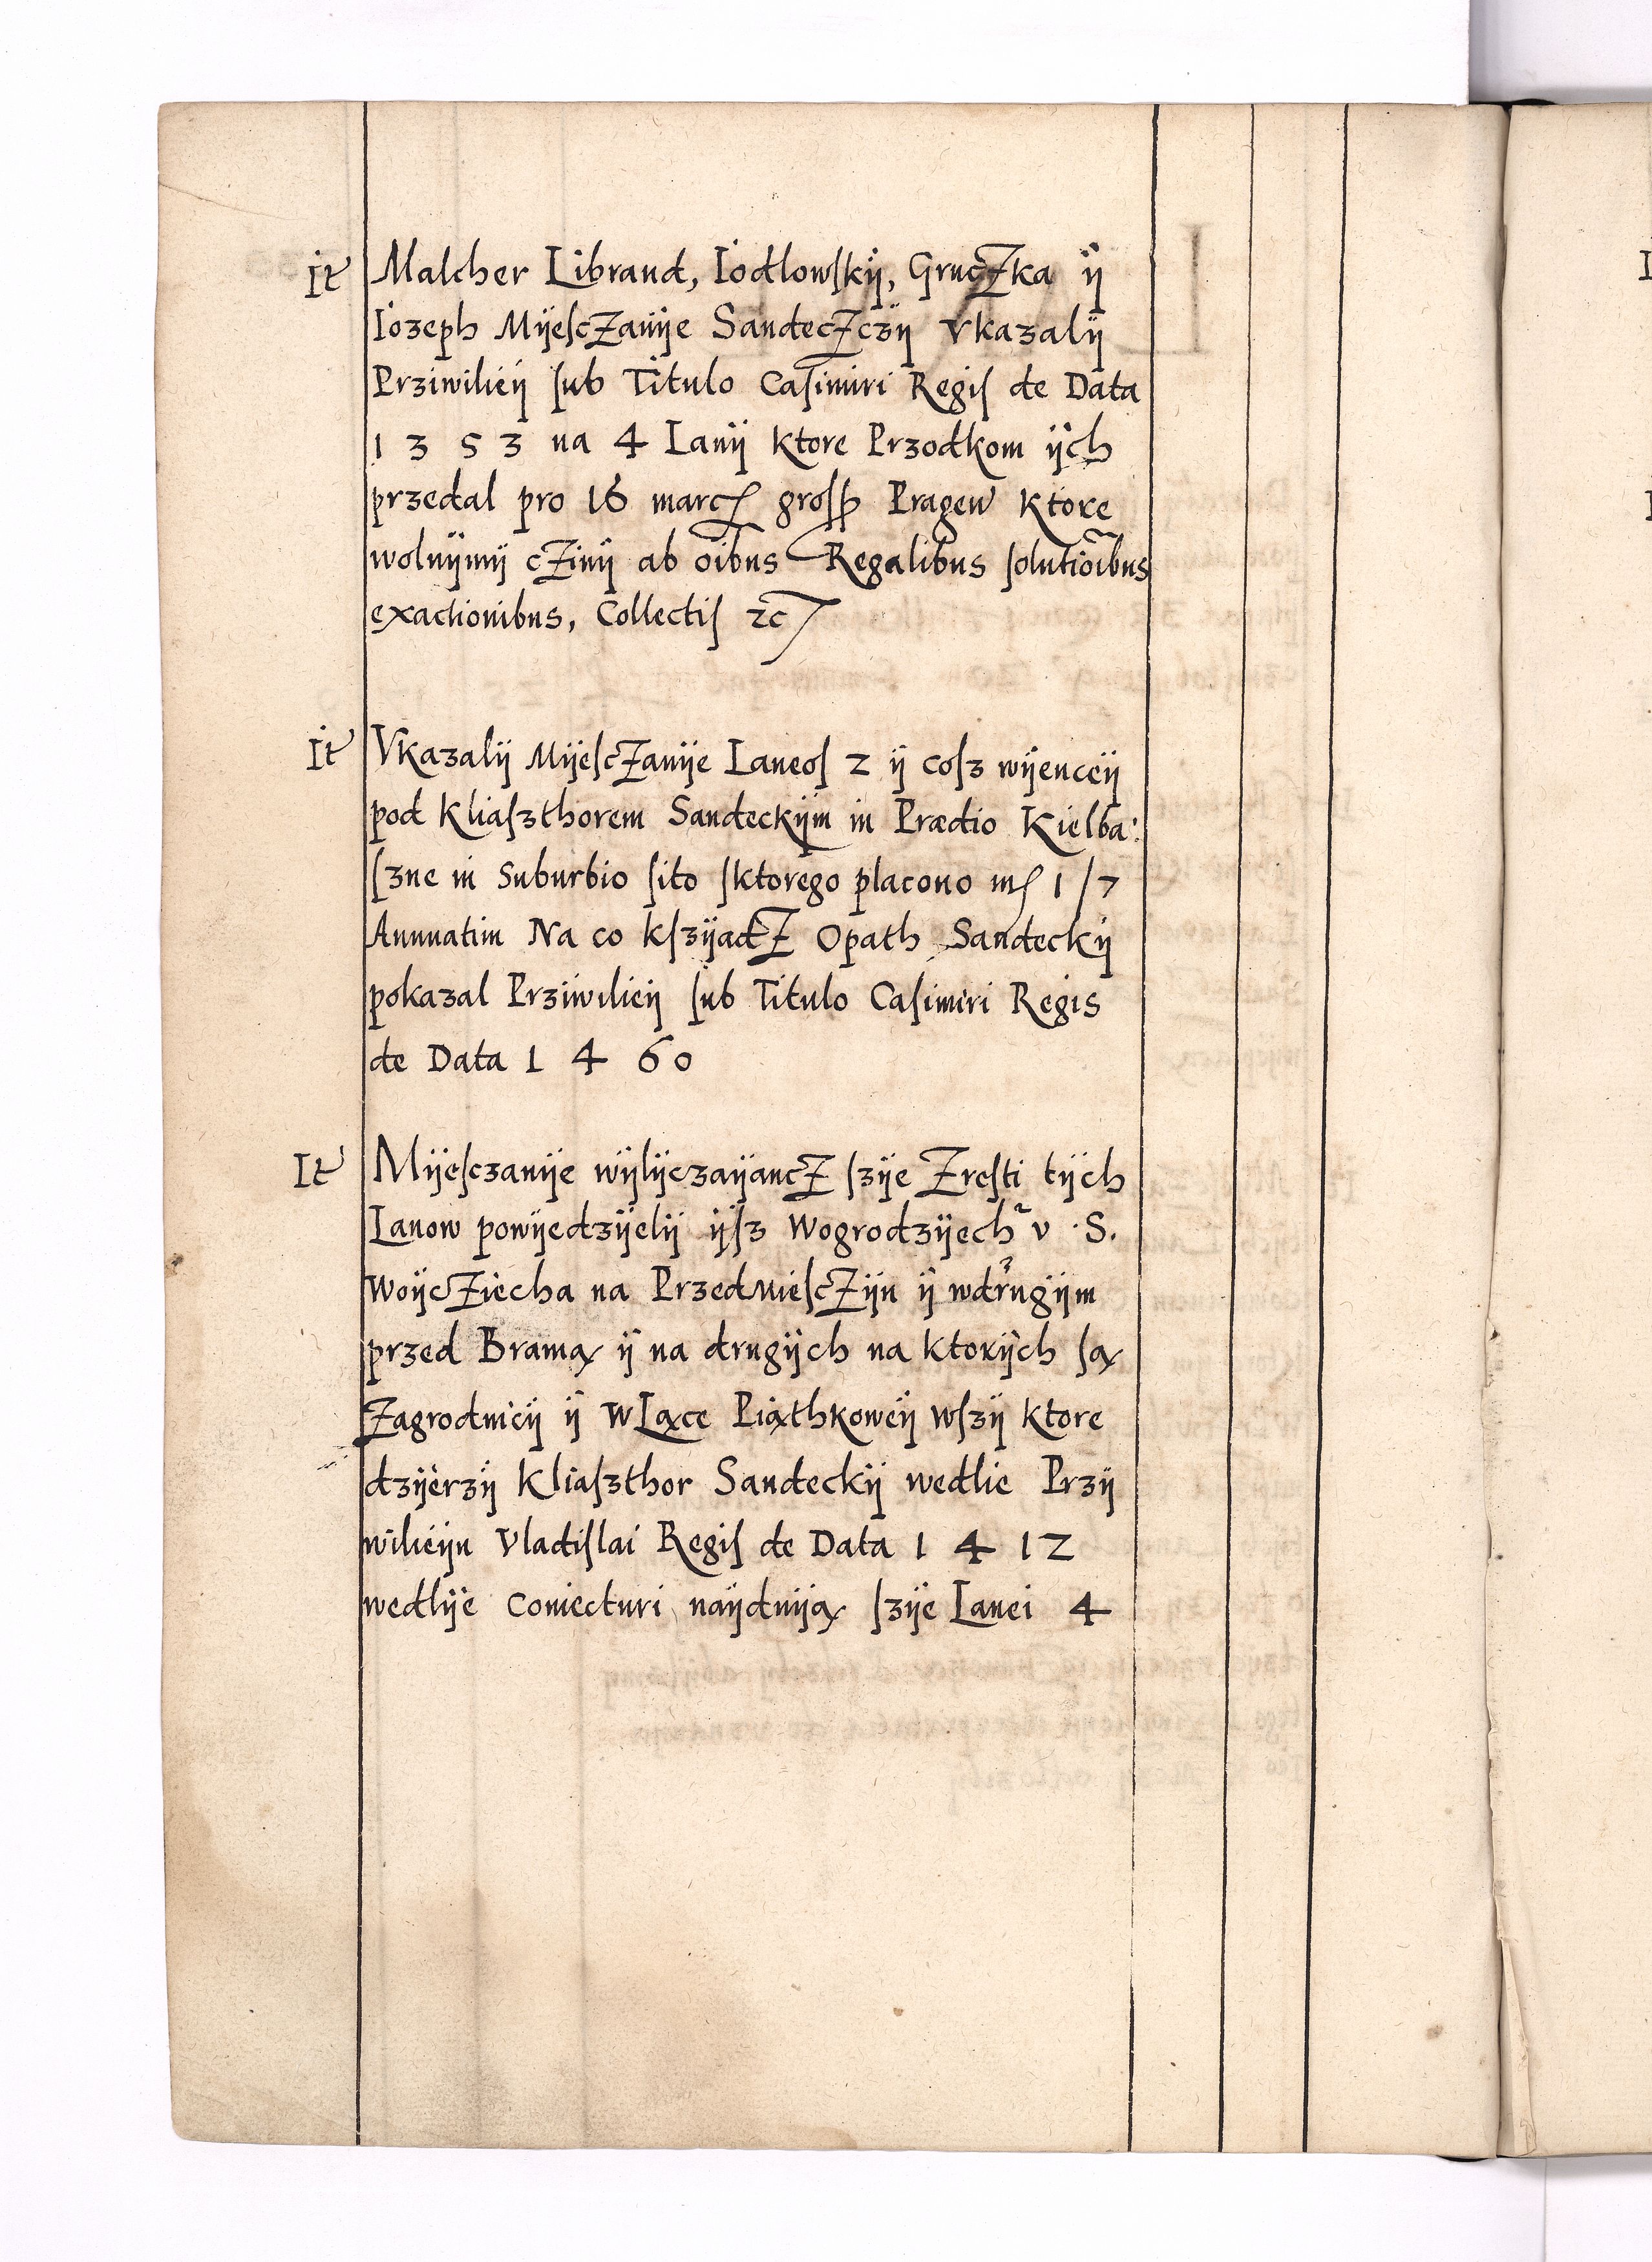 It Malcher Librand, Iodlowskÿ, GruczKa ÿ
Iozeph Mÿesczanÿe Sandeczczÿ Vkazalÿ
Prziwilieÿ sub Titulo Casimiri Regis de Data
1 3 5 3 na 4 Lanÿ Ktore Przodkom ÿch
przedal pro 16 marc grossß Pragen Ktore
wolnÿmÿ czinÿ ab oībus Regalibus solutiōībus
exactionibus, Collectis zc
It Vkazalÿ Mÿesczanÿe Laneos 2 ÿ cosz wÿenceÿ
pod Kliaszthorem Sandeckÿm in Prædio Kielba:
szne in Suburbio sito sktorego placono 1 / 7
Annuatim Na co kszÿadz Opath Sandeckÿ
pokazal Prziwilieÿ sub Titulo Casimiri Regis
de Data 1 4 6 0
It Mÿesczanÿe wÿlÿczaÿancz szÿe Zresti tÿch
Lanow powÿedzÿelÿ ÿsz Wogrodzÿech v . S.
Woÿcziecha na Przedmiesczÿu ÿ wdrugÿm
przed Bramą ÿ na drugÿch na Ktorÿch są
Zagrodnicÿ ÿ wLące Piąthkoweÿ wszÿ Ktore
dzÿerzÿ Kliaszthor Sandeckÿ wedlie Przÿ
wilieÿu Vladislai Regis de Data 1 4 1 2
wedlÿe Coniecturi naÿdnÿą szÿe Lanei 4